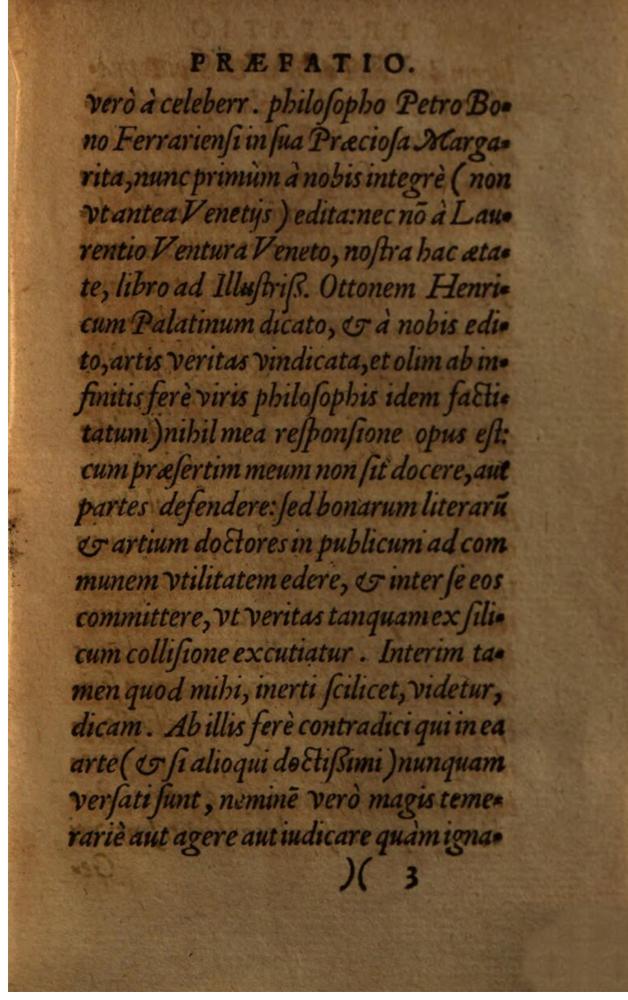 PRÆFATIO.
verò à celeberr. philoſopho Petro Bo-
no Ferrarienſi in ſua Præcioſa Marga-
rita, nunc primùm à nobis integrè (non
vt antea Venetijs) edita: nec nõ à Lau-
rentio Ventura Veneto, noſtra hac æta-
te, libro ad Illuſtriß. Ottonem Henri-
cum Palatinum dicato, & à nobis edi-
to, artis veritas vindicata, et olim ab in-
finitis ferè viris philoſophis idem facti-
tatum) nihil mea reſponſione opus eſt:
cum præſertim meum non ſit docere, aut
partes defendere: ſed bonarum literarũ
& artium doctores in publicum ad com
munem vtilitatem edere, & inter ſe eos
committere, vt veritas tanquam ex ſili-
cum colliſione excutiatur. Interim ta-
men quod mihi, inerti ſcilicet, videtur,
dicam. Ab illis ferè contradici qui in ea
arte (& ſi alioqui doctißimi) nunquam
verſati ſunt, neminẽ verò magis teme-
rariè aut agere aut iudicare quàm igna-
)( 3